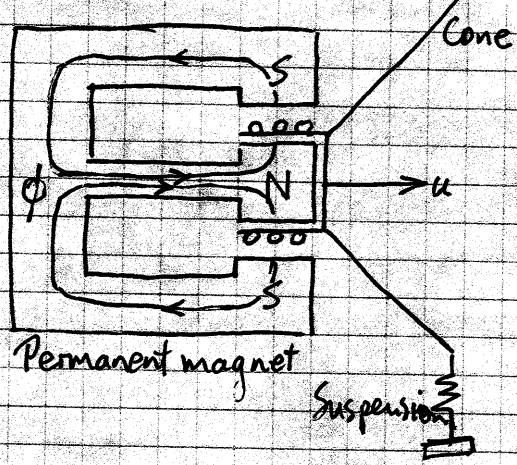 Cone
S
N
ϕ
u
S
Permanent magnet
Suspension